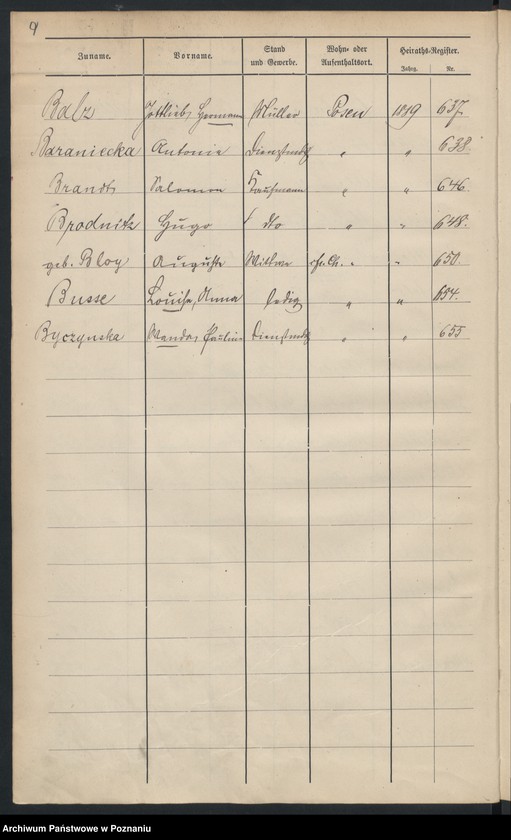 9
Zuname. Vorname. Stand und Gewerbe. Wohn- oder Aufenthaltsort. Heiraths-Register.
Jahrg. Nr.
Balz Gottlieb, Hermann Müller Posen 1889 637.
Baraniecka Antonie Dienstmdch " " 638.
Brandt Salomon Kaufmann " " 646.
Brodnitz Hugo dto " " 648.
geb. Bloy Auguste Wittwe " " 650.
Busse Louise, Anna ledig " " 654.
Byczynska Wanda, Pauline Dienstmdch " " 655
Archiwum Państwowe w Poznaniu